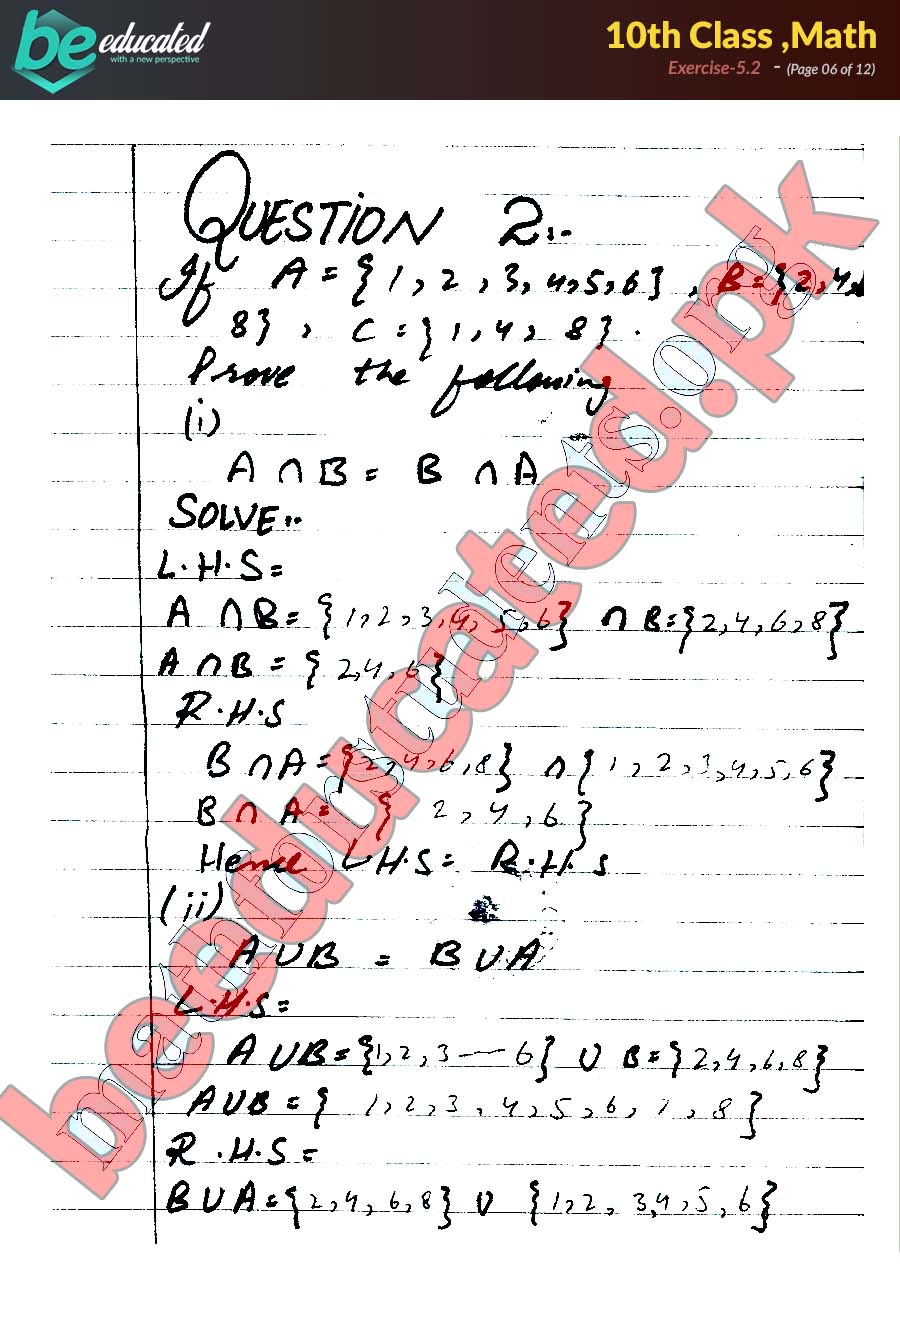 be educated
with a new perspective
10th Class ,Math
Exercise-5.2 - (Page 06 of 12)
QUESTION 2:-
If A = {1, 2, 3, 4, 5, 6}, B = {2, 4,
8}, C = {1, 4, 8}.
Prove the following
(i)
A ∩ B = B ∩ A
SOLVE:-
L.H.S =
A ∩ B = {1, 2, 3, 4, 5, 6} ∩ B = {2, 4, 6, 8}
A ∩ B = {2, 4, 6}
R.H.S
B ∩ A = {2, 4, 6, 8} ∩ {1, 2, 3, 4, 5, 6}
B ∩ A = { 2, 4, 6 }
Hence L.H.S = R.H.S
(ii)
A U B = B U A
L.H.S =
A U B = {1, 2, 3 — 6} U B = {2, 4, 6, 8}
A U B = { 1, 2, 3, 4, 5, 6, 7, 8 }
R.H.S =
B U A = {2, 4, 6, 8} U {1, 2, 3, 4, 5, 6}
beeducated.pk